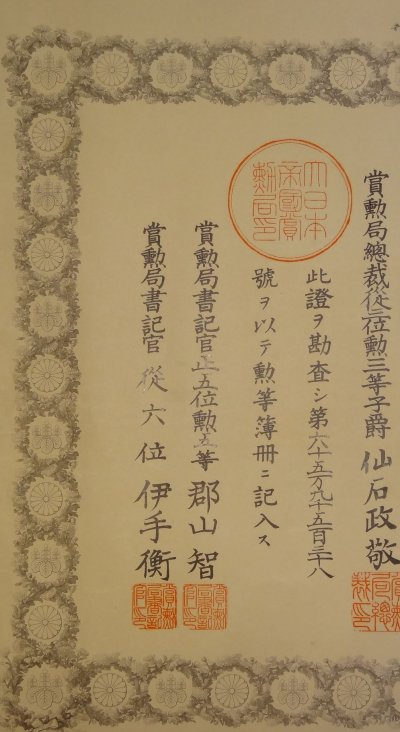 賞勲局總裁從三位勲三等子爵仙石政敬
大日本
帝國賞
勲局印
此證ヲ勘査シ第六十五万九千五百三十八
號ヲ以テ勲等簿冊ニ記入ス
賞勲局書記官正五位勲五等郡山智
賞勲局書記官從六位伊手衡